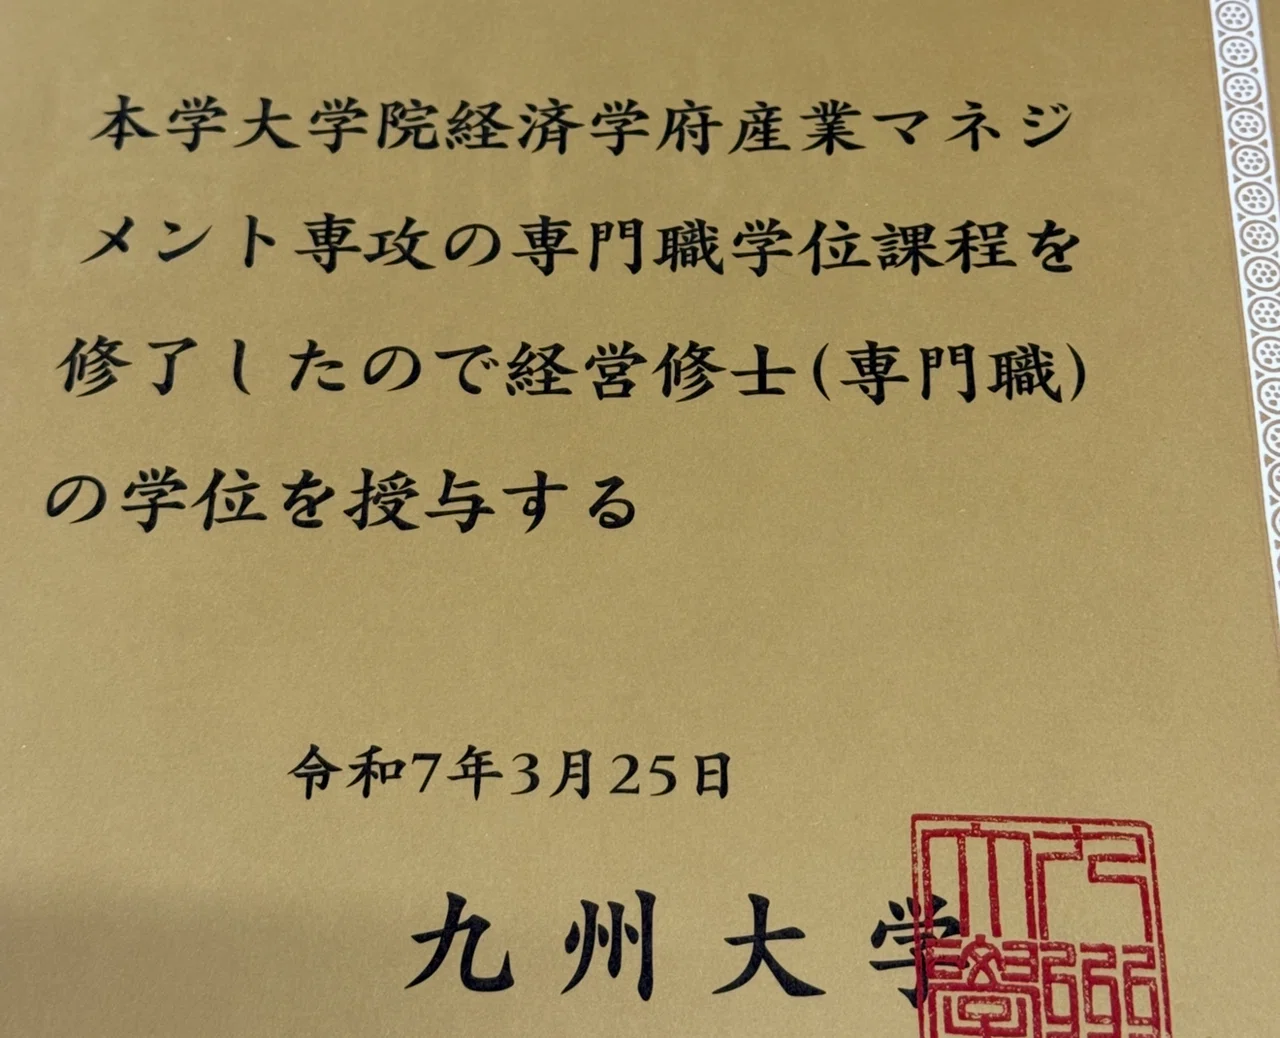 本学大学院経済学府産業マネジ
メント専攻の専門職学位課程を
修了したので経営修士(専門職)
の学位を授与する
令和7年3月25日
九州大学
九州大学